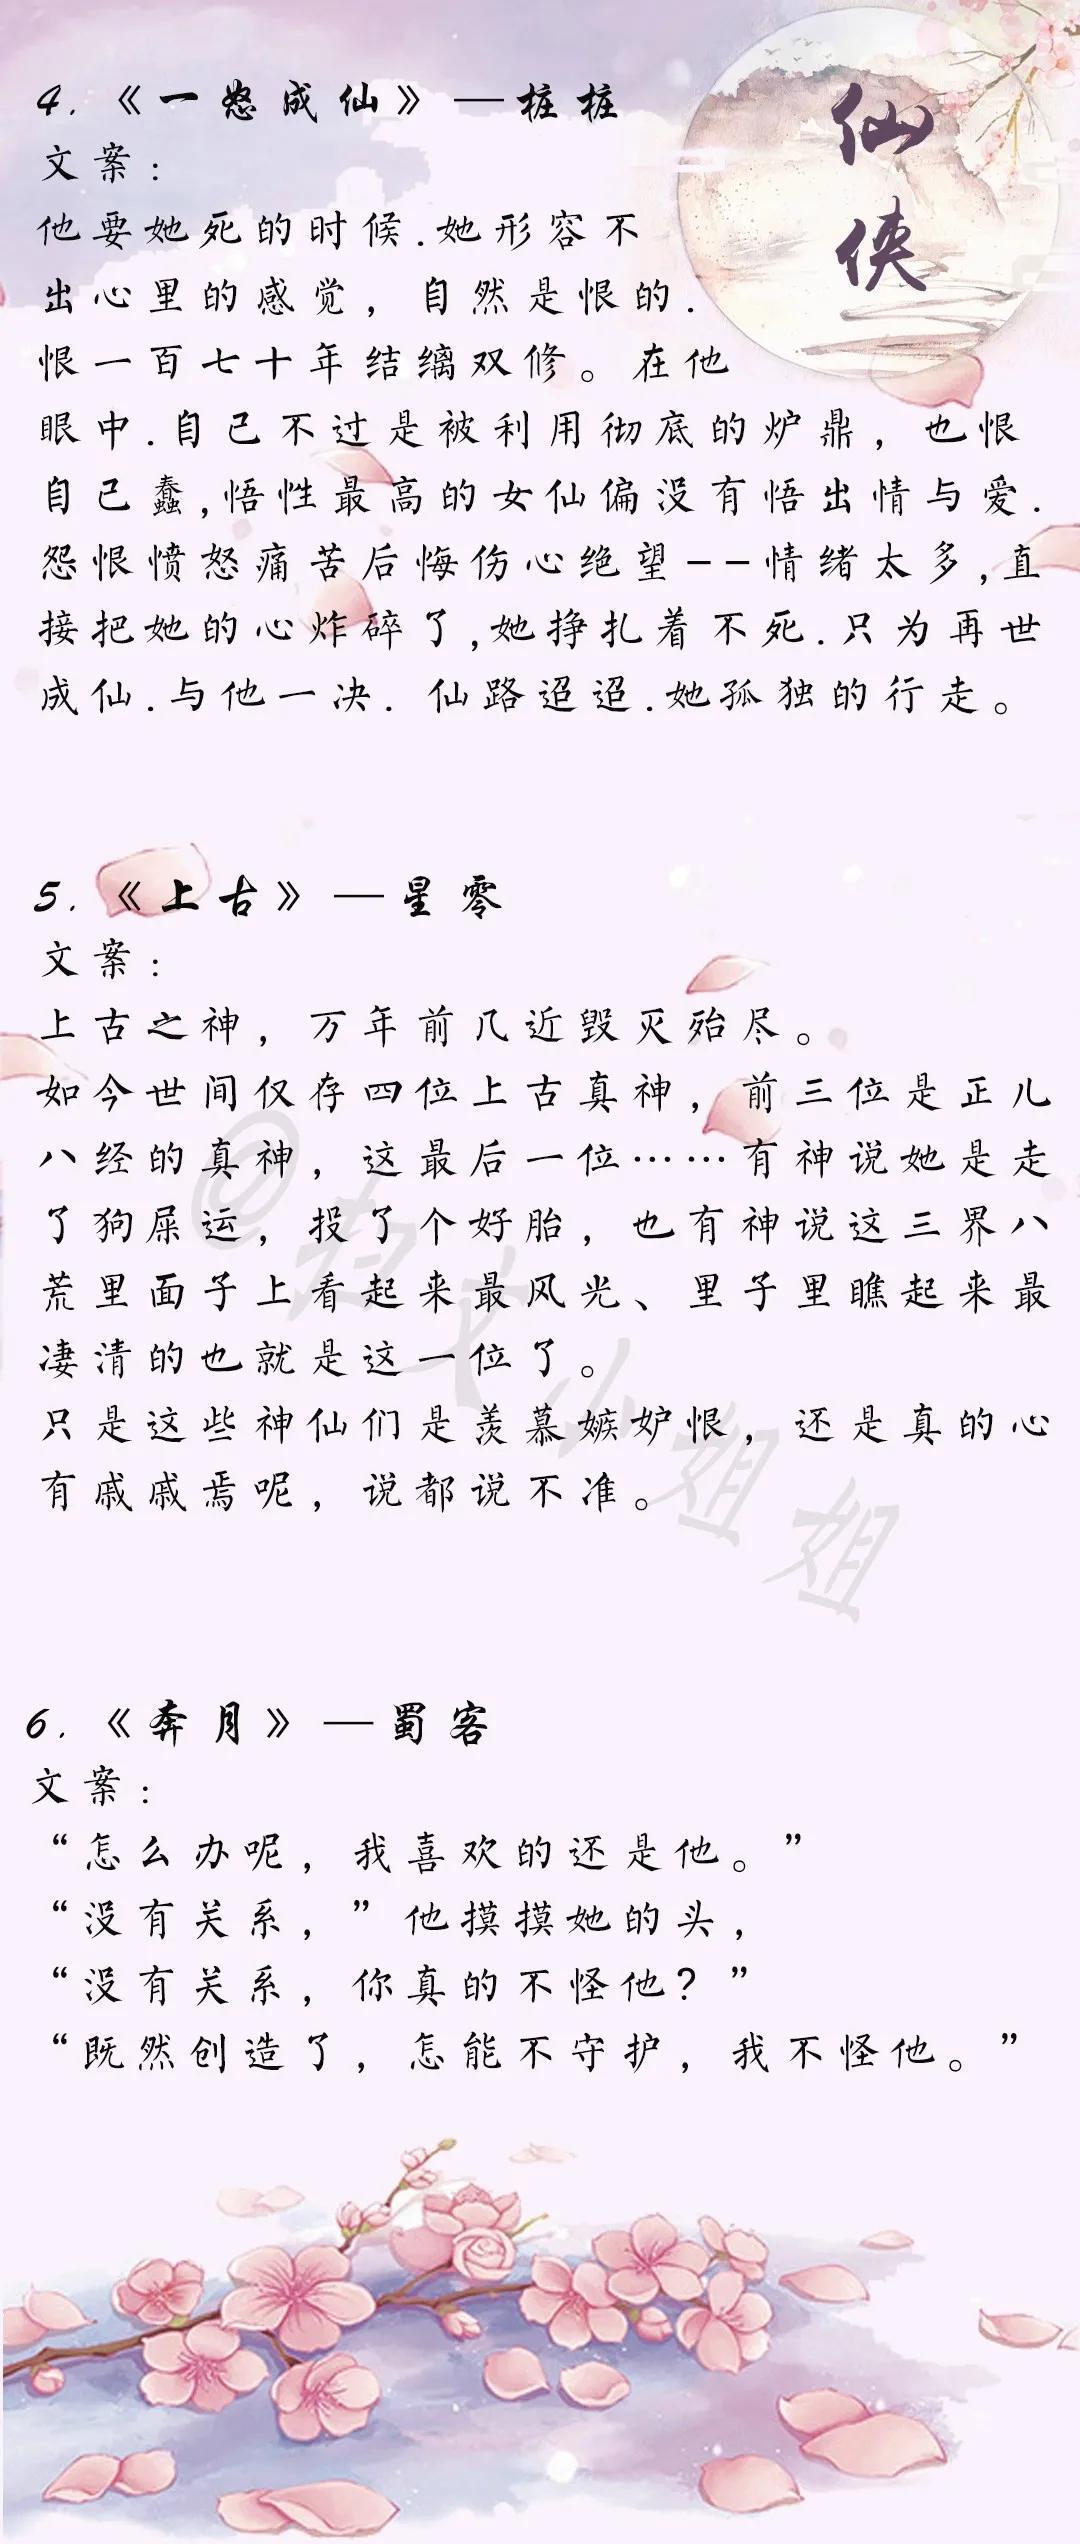 仙侠
4.《一怒成仙》—桩桩
文案:
他要她死的时候.她形容不
出心里的感觉，自然是恨的.
恨一百七十年结缡双修。在他
眼中.自己不过是被利用彻底的炉鼎，也恨
自己蠢,悟性最高的女仙偏没有悟出情与爱.
怨恨愤怒痛苦后悔伤心绝望--情绪太多,直
接把她的心炸碎了,她挣扎着不死.只为再世
成仙.与他一决. 仙路迢迢.她孤独的行走。
5.《上古》—星零
文案:
上古之神，万年前几近毁灭殆尽。
如今世间仅存四位上古真神，前三位是正儿
八经的真神，这最后一位……有神说她是走
了狗屎运，投了个好胎，也有神说这三界八
荒里面子上看起来最风光、里子里瞧起来最
凄清的也就是这一位了。
只是这些神仙们是羡慕嫉妒恨，还是真的心
有戚戚焉呢，说都说不准。
6.《奔月》—蜀客
文案:
“怎么办呢，我喜欢的还是他。”
“没有关系，”他摸摸她的头，
“没有关系，你真的不怪他？”
“既然创造了，怎能不守护，我不怪他。”